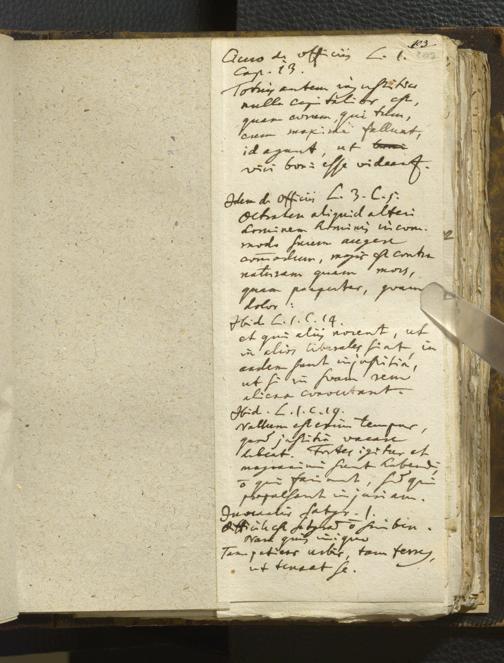 103
Cicero de officiis L. 1.
Cap. 13.
Totius autem injustitiae
nulla capitalior est,
quam eorum, qui tum,
cum maxime fallunt,
id agunt, ut
viri boni esse videantur.
Idem de officiis L. 3. C. 5.
Detrahere aliquid alteri
hominem hominis incom-
modo suum augere
commodum, magis est contra
naturam quam mors,
quam paupertas, quam
dolor.
Ibid. L. 1. C. 14.
et qui aliis nocent, ut
in alios liberales sint, in
eadem sunt injustitia,
ut si in suam rem
aliena convertant.
Ibid. L. 1. C. 19.
Nullum est enim tempus,
quod justitia vacare
debeat. Fortes igitur et
magnanimi sunt habendi,
õ qui faciunt, sed qui
propulsant injuriam.
Juvenalis Satyr. 1.
Difficile est satyram õ scribere.
Nam quis iniquae
Tam patiens urbis, tam ferreus,
ut teneat se.